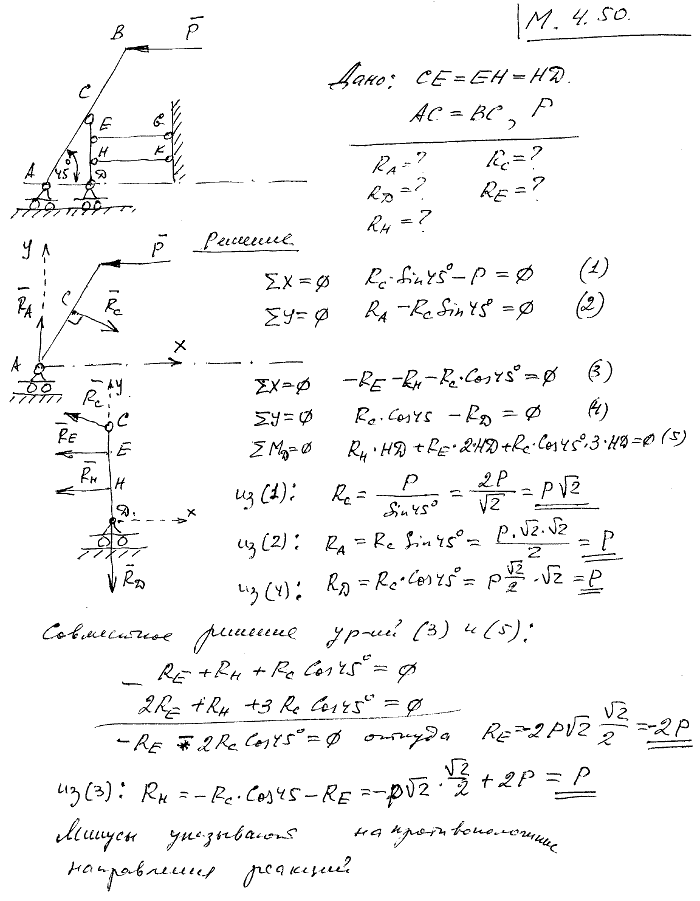 М. 4.50.
B P̄
C
E G
H K
A 45° D
Дано: CE = EH = HD.
AC = BC, P
R_A = ? R_C = ?
R_D = ? R_E = ?
R_H = ?
Решение
y P̄
R̄_A C R̄_C
A x
ΣX = ∅ R_C · Sin45° − P = ∅ (1)
ΣY = ∅ R_A − R_C Sin45° = ∅ (2)
R̄_C y
C
R̄_E E
R̄_H H
D. x
R̄_D
ΣX = ∅ −R_E − R_H − R_C · Cos45° = ∅ (3)
ΣY = ∅ R_C · Cos45 − R_D = ∅ (4)
ΣM_D = ∅ R_H · HD + R_E · 2HD + R_C · Cos45° · 3 · HD = ∅ (5)
из (1): R_C = P / Sin45° = 2P / √2 = P√2
из (2): R_A = R_C Sin45° = P · √2 · √2 / 2 = P
из (4): R_D = R_C · Cos45° = P √2/2 · √2 = P
Совместное решение ур-ий (3) и (5):
− R_E + R_H + R_C Cos45° = ∅
2R_E + R_H + 3 R_C Cos45° = ∅
−R_E − 2R_C Cos45° = ∅ откуда R_E = −2P√2 √2/2 = −2P
из (3): R_H = −R_C · Cos45 − R_E = −P√2 · √2/2 + 2P = P
Минусы указывают на противоположные
направления реакций